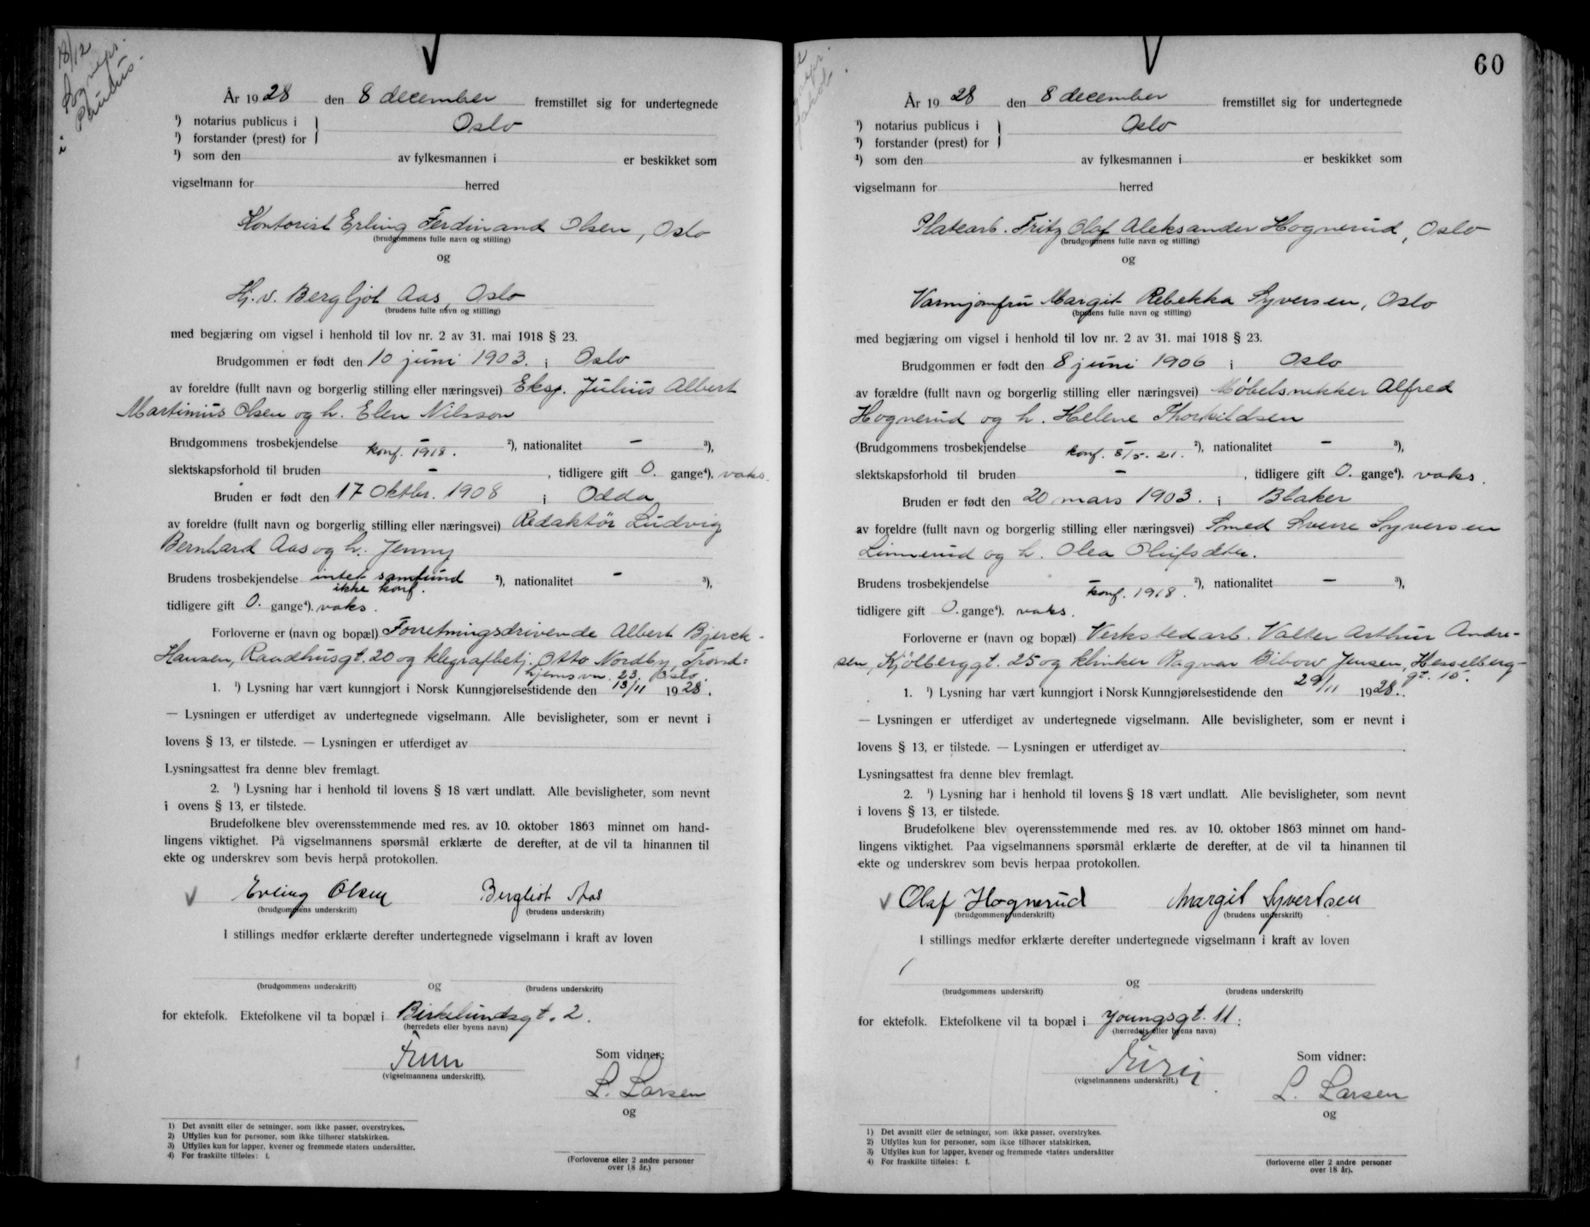 18/12
År 1928 den 8 december fremstillet sig for undertegnede
¹) notarius publicus i } Oslo
¹) forstander (prest) for
¹) som den av fylkesmannen i er beskikket som
vigselmann for herred
Kontorist Erling Ferdinand Olsen, Oslo
(brudgommens fulle navn og stilling)
og
Hj.v. Bergljot Aas, Oslo
(brudens fulle navn og stilling)
med begjæring om vigsel i henhold til lov nr. 2 av 31. mai 1918 § 23.
Brudgommen er født den 10 juni 1903. i Oslo
av foreldre (fullt navn og borgerlig stilling eller næringsvei) Eksp. Julius Albert
Martinius Olsen og h. Elen Nilsson
Brudgommens trosbekjendelse – ²), nationalitet – ³),
konf. 1918.
slektskapsforhold til bruden – , tidligere gift 0. gange⁴). vaks.
Bruden er født den 17 oktbr. 1908 i Odda
av foreldre (fullt navn og borgerlig stilling eller næringsvei) Redaktör Ludvig
Bernhard Aas og h. Jenny
Brudens trosbekjendelse intet samfund ²), nationalitet – ³),
ikke konf.
tidligere gift 0. gange⁴). vaks.
Forloverne er (navn og bopæl) Forretningsdrivende Albert Bjerck-
Hansen, Raadhusgt. 20 og telegrafbetj. Otto Nordby, Trond=
hjemsvn. 23, Oslo.
1. ¹) Lysning har vært kunngjort i Norsk Kunngjørelsestidende den 13/11 1928.
— Lysningen er utferdiget av undertegnede vigselmann. Alle bevisligheter, som er nevnt i
lovens § 13, er tilstede. — Lysningen er utferdiget av
Lysningsattest fra denne blev fremlagt.
2. ¹) Lysning har i henhold til lovens § 18 vært undlatt. Alle bevisligheter, som nevnt
i ovens § 13, er tilstede.
Brudefolkene blev overensstemmende med res. av 10. oktober 1863 minnet om hand-
lingens viktighet. På vigselmannens spørsmål erklærte de derefter, at de vil ta hinannen til
ekte og underskrev som bevis herpå protokollen.
Erling Olsen Bergliot Aas
(brudgommens underskrift) (brudens underskrift)
I stillings medfør erklærte derefter undertegnede vigselmann i kraft av loven
og
(brudgommens underskrift) (brudens underskrift)
for ektefolk. Ektefolkene vil ta bopæl i Birkelundsgt. 2.
(herredets eller byens navn)
Som vidner:
(vigselmannens underskrift).
L. Larsen
og
1) Det avsnitt eller de setninger, som ikke passer, overstrykes.
2) Utfylles kun for personer, som ikke tilhører statskirken.
3) Utfylles kun for lapper, kvener og fremmede staters undersåtter.
4) For fraskilte tilføies: f.
(Forloverne eller 2 andre personer
over 18 år.)
60
År 1928 den 8 december fremstillet sig for undertegnede
¹) notarius publicus i } Oslo
¹) forstander (prest) for
¹) som den av fylkesmannen i er beskikket som
vigselmann for herred
Platearb. Fritz Olaf Aleksander Hognerud, Oslo
(brudgommens fulle navn og stilling)
og
Varmjomfru Margit Rebekka Syversen, Oslo
(brudens fulle navn og stilling)
med begjæring om vigsel i henhold til lov nr. 2 av 31. mai 1918 § 23.
Brudgommen er født den 8 juni 1906 i Oslo
av forældre (fullt navn og borgerlig stilling eller næringsvei) Møbelsnekker Alfred
Hognerud og h. Helene Thorkildsen
(Brudgommens trosbekjendelse – ²), nationalitet – ³),
konf. 8/5. 21.
slektskapsforhold til bruden – , tidligere gift 0. gange⁴). vaks.
Bruden er født den 20 mars 1903. i Blaker
av foreldre (fullt navn og borgerlig stilling eller næringsvei) Smed Sverre Syversen
Linnerud og h. Olea Olufsdtr.
Brudens trosbekjendelse – ²), nationalitet – ³),
konf. 1918.
tidligere gift 0. gange⁴). vaks.
Forloverne er (navn og bopæl) Verkstedarb. Valter Arthur Andre-
sen, Kjölberggt. 25 og klinker Ragnar Bibow Jensen, Hesselberg-
gt. 15.
1. ¹) Lysning har vært kunngjort i Norsk Kunngjørelsestidende den 29/11 1928.
— Lysningen er utferdiget av undertegnede vigselmann. Alle bevisligheter, som er nevnt i
lovens § 13, er tilstede. — Lysningen er utferdiget av
Lysningsattest fra denne blev fremlagt.
2. ¹) Lysning har i henhold til lovens § 18 vært undlatt. Alle bevisligheter, som nevnt
i lovens § 13, er tilstede.
Brudefolkene blev overensstemmende med res. av 10. oktober 1863 minnet om hand-
lingens viktighet. Paa vigselmannens spørsmål erklærte de derefter, at de vil ta hinannen til
ekte og underskrev som bevis herpaa protokollen.
Olaf Hognerud Margit Syvertsen
(brudgommens underskrift) (brudens underskrift)
I stillings medfør erklærte derefter undertegnede vigselmann i kraft av loven
og
(brudgommens underskrift) (brudens underskrift)
for ektefolk. Ektefolkene vil ta bopæl i Youngsgt. 11.
(herredets eller byens navn)
Som vidner:
(vigselmannens underskrift.)
L. Larsen
og
1) Det avsnitt eller de setninger, som ikke passer, overstrykes.
2) Utfylles kun for personer, som ikke tilhører statskirken.
3) Utfylles kun for lapper, kvener og fremmede staters undersåtter
4) For fraskilte tilføies: f.
(forloverne eller 2 andre personer
over 18 år).